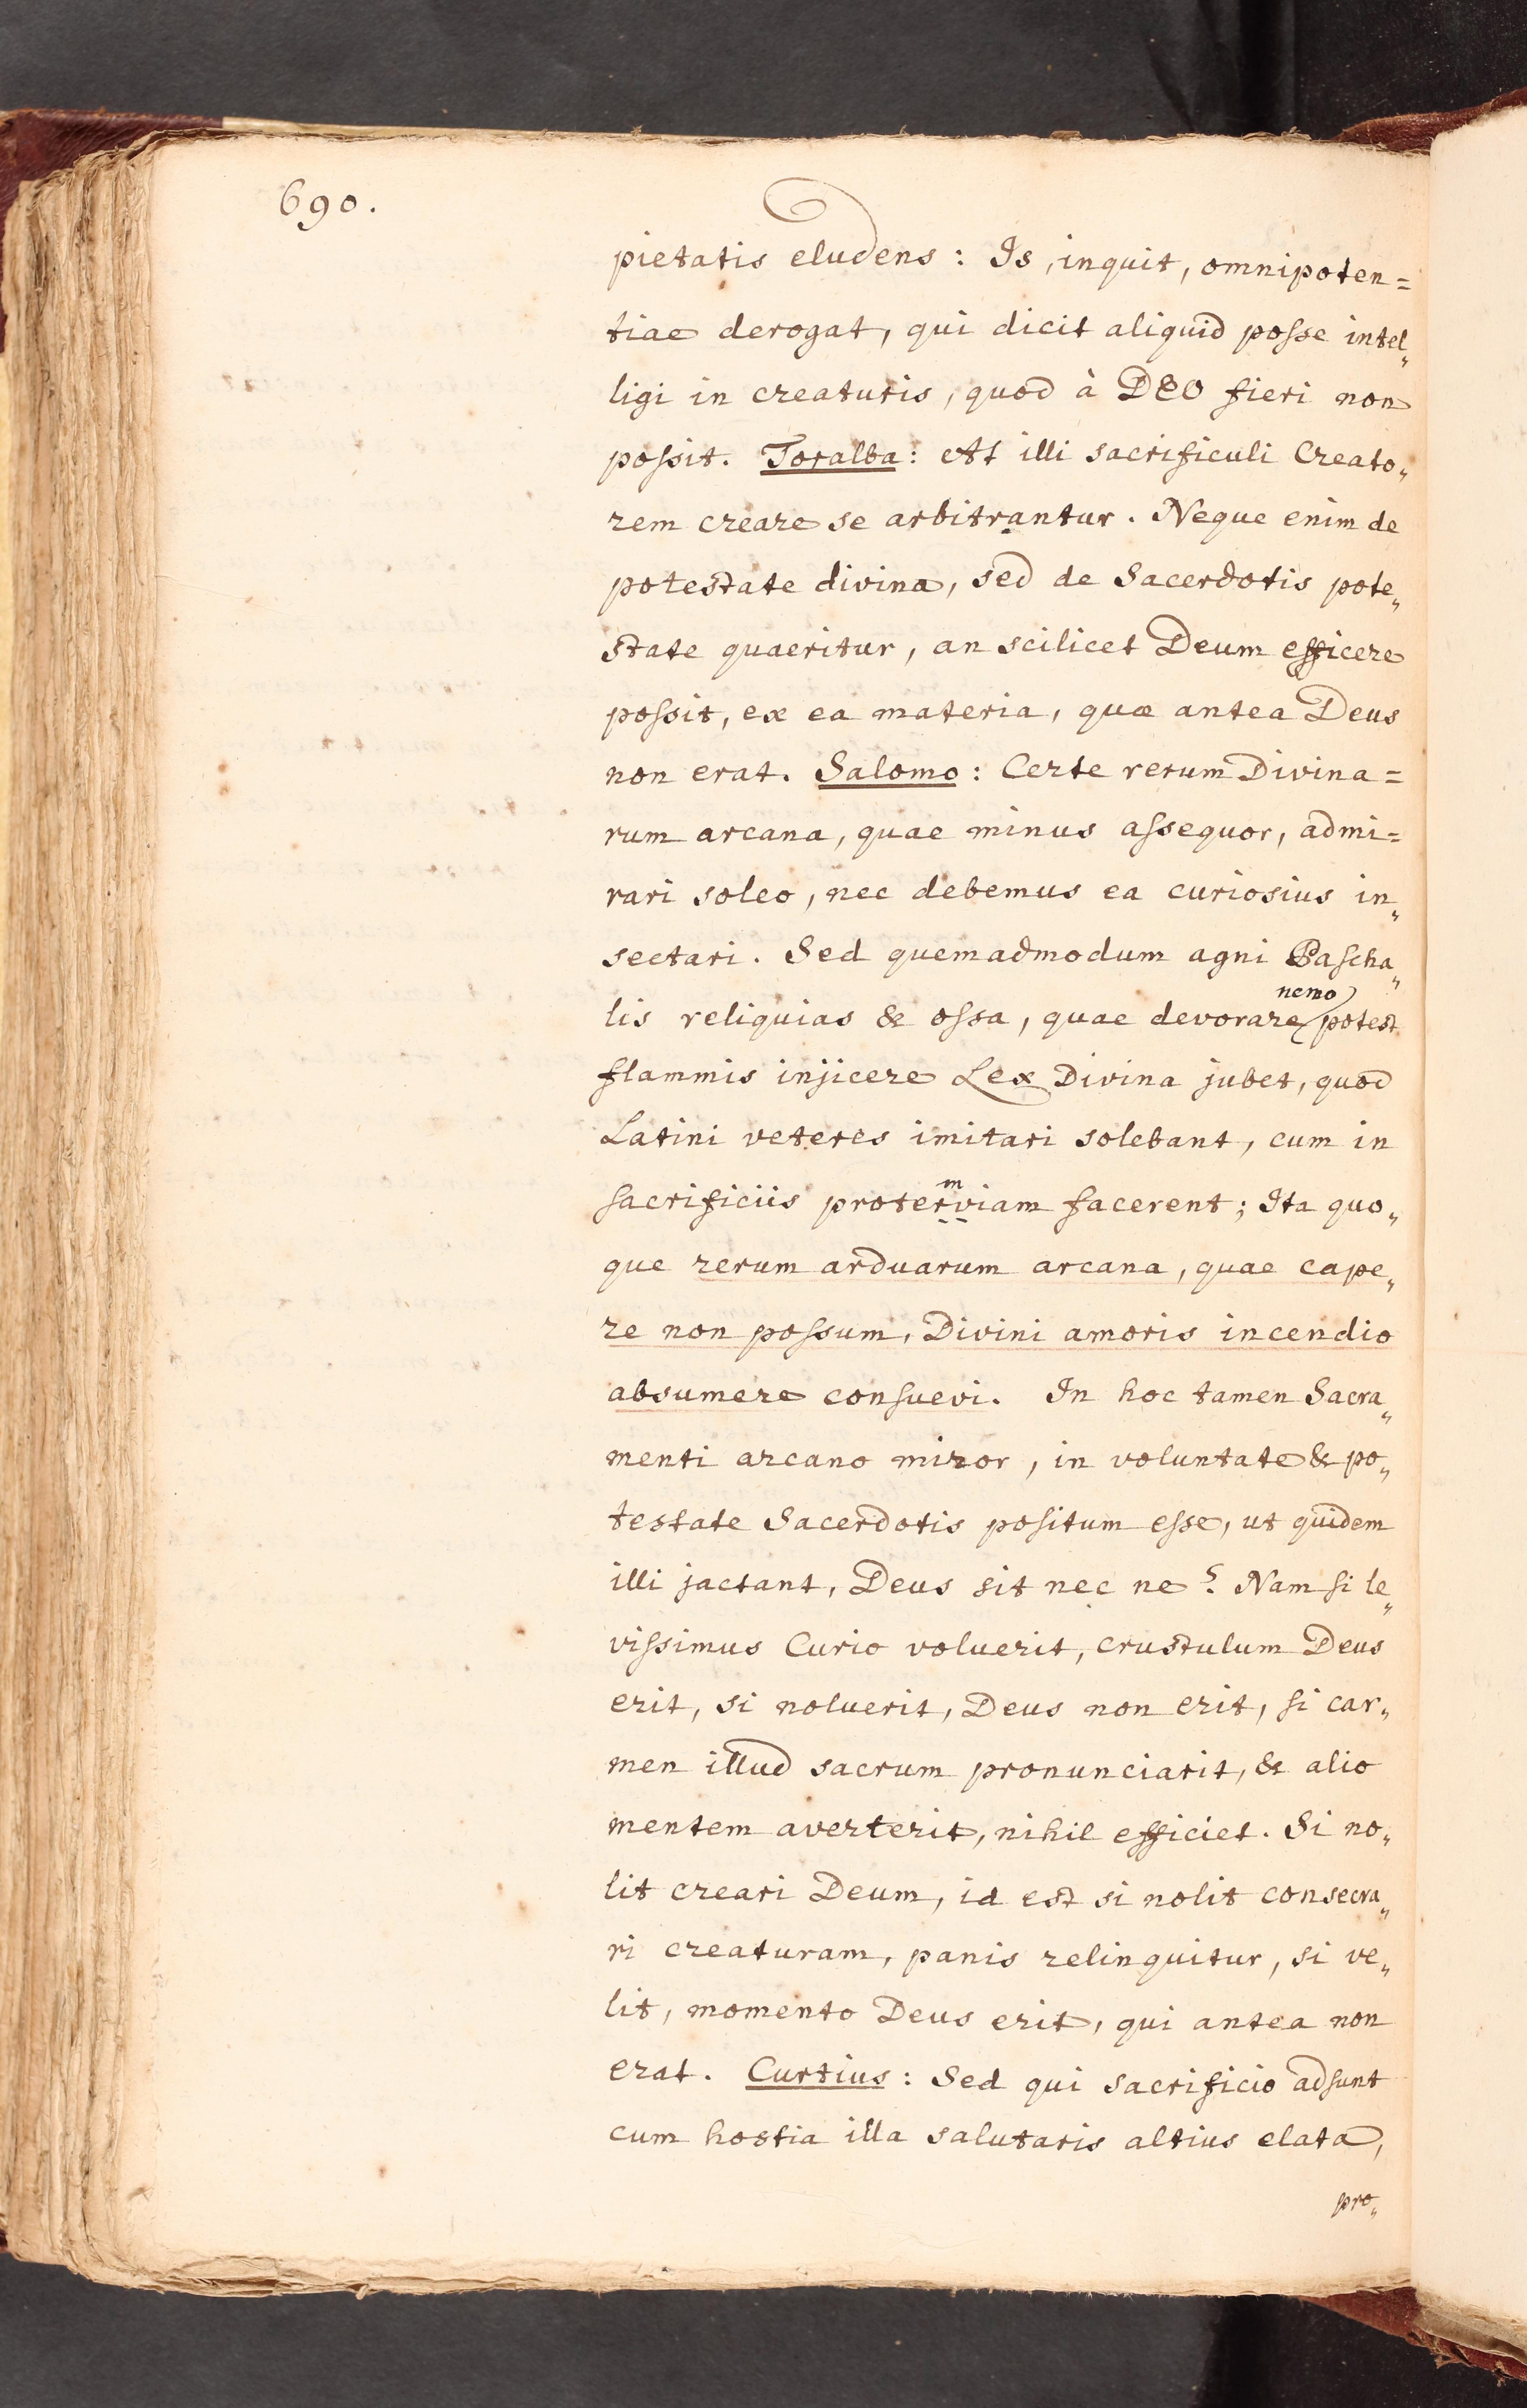 690.
pietatis eludens: Is, inquit, omnipoten=
tiae derogat, qui dicit aliquid posse intel„
ligi in creaturis, quod à DEO fieri non
possit. Toralba: At illi sacrificuli Creato„
rem creare se arbitrantur. Neque enim de
potestate divina, sed de Sacerdotis pote„
state quaeritur, an scilicet Deum efficere
possit, ex ea materia, quae antea Deus
non erat. Salomo: Certe rerum Divina=
rum arcana, quae minus assequor, admi=
rari soleo, nec debemus ea curiosius in„
sectari. Sed quemadmodum agni Pascha„
nemo
lis reliquias & ossa, quae devorare potest
flammis injicere Lex Divina jubet, quod
Latini veteres imitari solebant, cum in
m
sacrificiis proterviam facerent; Ita quo„
que rerum arduarum arcana, quae cape„
re non possum, Divini amoris incendio
absumere consuevi. In hoc tamen Sacra„
menti arcano miror, in voluntate & po„
testate Sacerdotis positum esse, ut quidem
illi jactant, Deus sit nec ne? Nam si le„
vissimus Curio voluerit, crustulum Deus
erit, si noluerit, Deus non erit, si car„
men illud sacrum pronunciarit, & alio
mentem averterit, nihil efficiet. Si no„
lit creari Deum, id est si nolit consecra„
ri creaturam, panis relinquitur, si ve„
lit, momento Deus erit, qui antea non
erat. Curtius: Sed qui sacrificio adsunt
cum hostia illa salutaris altius elata,
pro„